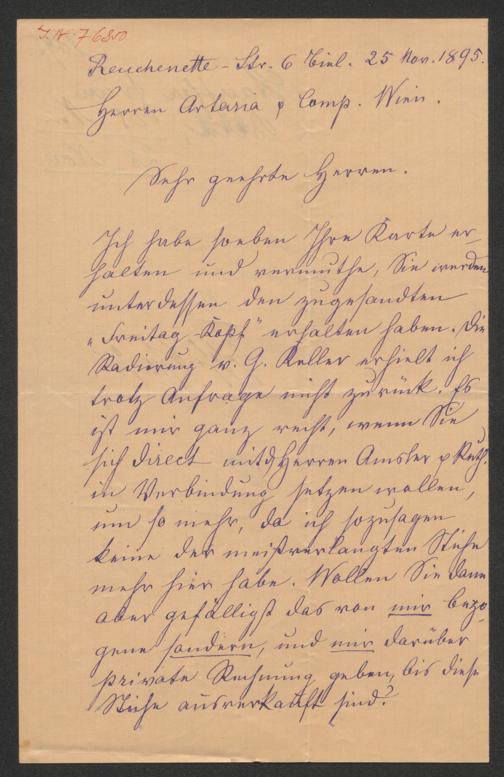 J.N. 76850
Reuchenette-Str. 6 Biel. 25 Nov. 1895.
Herren Artaria & Comp. Wien.
Sehr geehrte Herren.
Ich habe soeben Ihre Karte er-
halten und vermuthe, Sie werden
unterdessen den zugesandten
"Freitag-Kopf" erhalten haben. Die
Radierung v. G. Keller erhielt ich
trotz Anfrage nicht zurück. Es
ist mir ganz recht, wenn Sie
sich direct mit d Herren Amsler & Ruth.
in Verbindung setzen wollen,
um so mehr, da ich sozusagen
keine der meistverlangten Stiche
mehr hier habe. Wollen Sie dann
aber gefälligst das von mir bezo-
gene sondern, und mir darüber
private Rechnung geben, bis diese
Stiche ausverkauft sind?